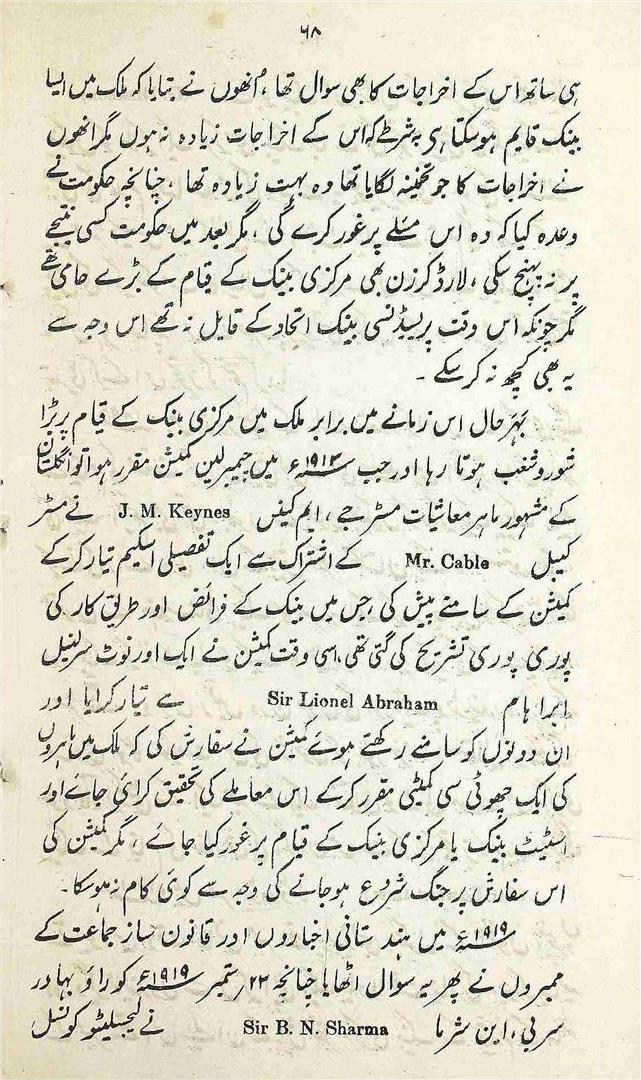 ۶۸
ہی ساتھ اس کے اخراجات کا بھی سوال تھا، اُنھوں نے بتایا کہ ملک میں ایسا
بینک قایم ہوسکتا ہی بہ شرطے کہ اس کے اخراجات زیادہ نہ ہوں مگر انھوں
نے اخراجات کا جو تخمینہ لگایا تھا وہ بہت زیادہ تھا، چنانچہ حکومت نے
وعدہ کیا کہ وہ اس مسئلے پر غور کرے گی، مگر بعد میں حکومت کسی نتیجے
پر نہ پہنچ سکی، لارڈ کرزن بھی مرکزی بینک کے قیام کے بڑے حامی تھے
مگر چونکہ اس وقت پریسیڈنسی بینک اتحاد کے قایل نہ تھے اس وجہ سے
یہ بھی کچھ نہ کرسکے۔
بہر حال اس زمانے میں برابر ملک میں مرکزی بینک کے قیام پر بڑا
شور و شغب ہوتا رہا اور جب ۱۹۱۳ء میں چیمبرلین کمیشن مقرر ہوا تو انگلستان
کے مشہور ماہر معاشیات مسٹر جے، ایم کینس J. M. Keynes نے مسٹر
کیبل Mr. Cable کے اشتراک سے ایک تفصیلی اسکیم تیار کرکے
کمیشن کے سامنے پیش کی، جس میں بینک کے فرائض اور طریق کار کی
پوری پوری تشریح کی گئی تھی، اسی وقت کمیشن نے ایک اور نوٹ سر لنیل
ابراہام Sir Lionel Abraham سے تیار کرایا اور
ان دونوں کو سامنے رکھتے ہوئے کمیشن نے سفارش کی کہ ملک میں ماہروں
کی ایک چھوٹی سی کمیٹی مقرر کرکے اس معاملے کی تحقیق کرائی جائے اور
اسٹیٹ بینک یا مرکزی بینک کے قیام پر غور کیا جائے، مگر کمیشن کی
اس سفارش پر جنگ شروع ہوجانے کی وجہ سے کوئی کام نہ ہوسکا۔
۱۹۱۹ء میں ہندستانی اخباروں اور قانون ساز جماعت کے
ممبروں نے پھر یہ سوال اٹھایا چنانچہ ۲۳ ستمبر ۱۹۱۹ء کو راؤ بہادر
سر بی، این شرما Sir B. N. Sharma نے لیجسلیٹو کونسل